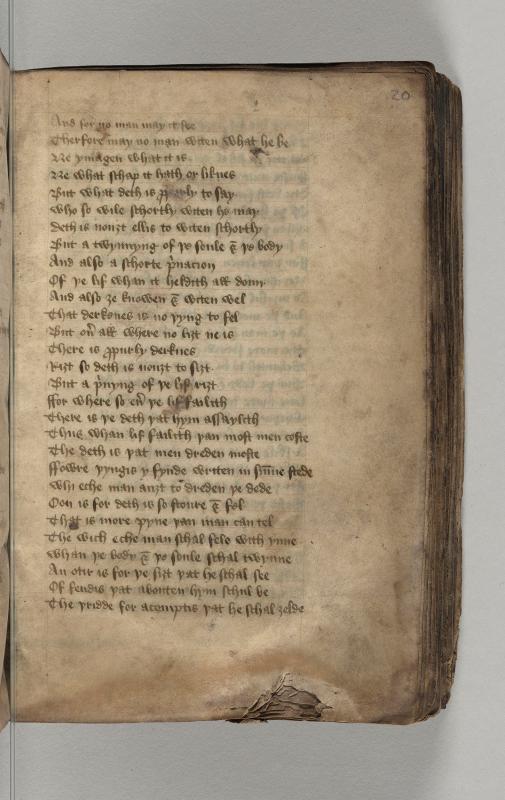 20
And for no man may it see
Therfore may no man witen what he be
Ne ymagen what it is
Ne what schap it hath or liknes
But what deth is ꝓꝑly to say
Who so wile schortly witen he may
deth is nouȝt ellis to witen schortly
But a twynnyng of þe soule & þe body
And also a schorte p̄uacion
Of þe lif whan it heldith all doun
And also ȝe knowen & witen wel
That derknes is no þyng to fel
But ou̅ all where no liȝt ne is
There is ꝓpurly derknes
Riȝt so deth is nouȝt to siȝt
But a p̄uyng of þe lif riȝt
ffor where so eu̅ þe lif failith
There is þe deth þat hym assaylith
Thus whan lif failith þan most men coste
The deth is þat men dreden moste
ffowre þyngis y fynde writen in su̅me stede
Whi eche man auȝt to dreden þe dede
Oon is for deth is so stoure & fel
That is more pyne þan man can tel
The wich eche man schal fele with ynne
Whan þe body & þe soule schal twynne
An oþir is for þe siȝt þat he schal see
Of fendis þat abouten hym schul be
The þridde for acomptis þat he schal ȝelde